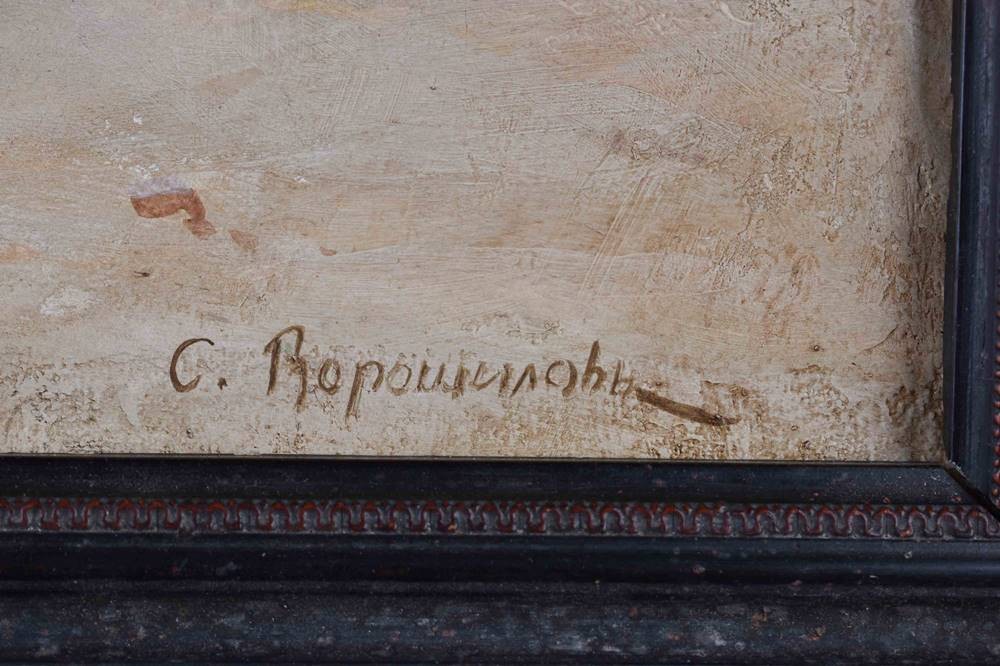 С. Ворошиловъ